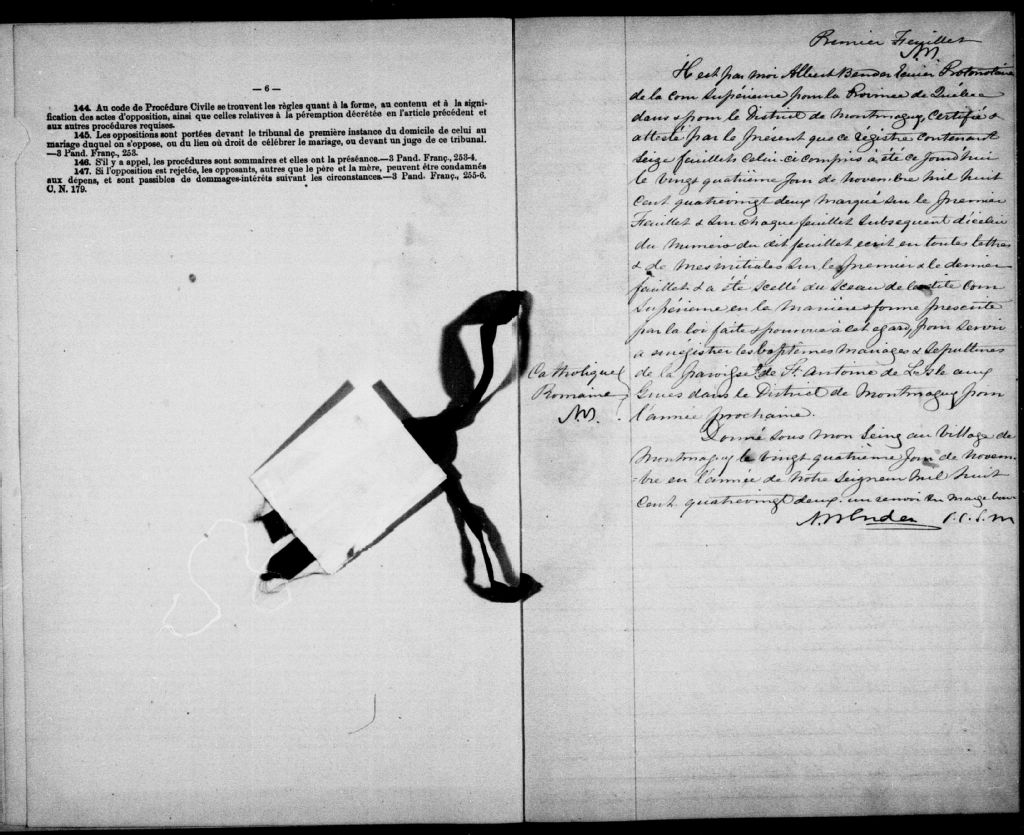 — 6 —
144. Au code de Procédure Civile se trouvent les règles quant à la forme, au contenu et à la signi-
fication des actes d'opposition, ainsi que celles relatives à la péremption décrétée en l'article précédent et
aux autres procédures requises.
145. Les oppositions sont portées devant le tribunal de première instance du domicile de celui au
mariage duquel on s'oppose, ou du lieu où droit de célébrer le mariage, ou devant un juge de ce tribunal.
—3 Pand. Franç., 253.
146. S'il y a appel, les procédures sont sommaires et elles ont la préséance.—3 Pand. Franç., 253-4.
147. Si l'opposition est rejetée, les opposants, autres que le père et la mère, peuvent être condamnés
aux dépens, et sont passibles de dommages-intérêts suivant les circonstances.—3 Pand. Franç., 255-6.
C. N. 179.
Premier Feuillet
Il est par moi Albert Bender Protonotaire
de la cour Supérieure pour la Province de Québec
dans & pour le District de Montmagny, Certifié &
attesté par le présent que ce régistre contenant
Seize feuillets celui-ci compris a été ce jourd'hui
le vingt quatrième jour de novembre mil huit
cent quatrevingt deux marqué sur le premier
Feuillet & sur chaque feuillet subsequent d'icelui
du numéro du dit feuillet ecrit en toutes lettres
& de mes initiales sur le premier & le dernier
feuillet & a été scellé du sceau de la dite cour
Supérieure en la manière & forme prescrite
par la loi faite & pourvue à cet egard, pour servir
a enrégistrer les baptêmes mariages & sepultures
de la paroisse de St. Antoine de L'isle aux
Grues dans le District de Montmagny pour
l'année prochaine.
Catholique
Romaine
Donné sous mon seing au village de
Montmagny le vingt quatrième jour de novem-
-bre en l'année de notre seigneur mil huit
cent quatrevingt deux. un renvoi en marge bon
A Bender P.C.S.M